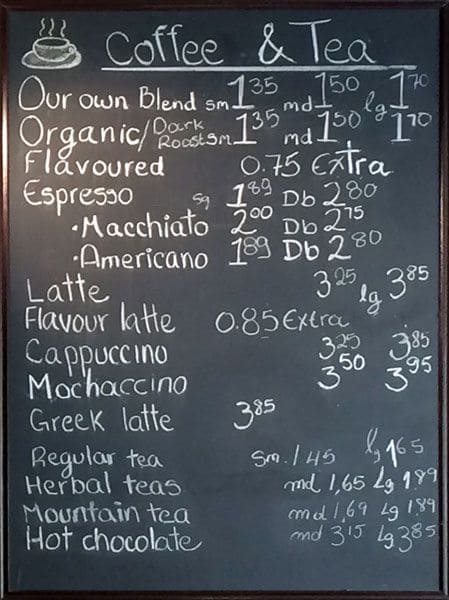 Coffee & Tea
Our own Blend sm 1 35 md 1 50 lg 1 70
Organic/Dark Roast sm 1 35 md 1 50 1 70
Flavoured 0.75 Extra
Espresso sg 1 89 Db 2 80
·Macchiato 2 00 Db 2 75
·Americano 1 89 Db 2 80
Latte 3 25 lg 3 85
Flavour latte 0.85 Extra
Cappuccino 3 25 3 85
Mochaccino 3 50 3 95
Greek latte 3 85
Regular tea sm. 1 45 lg 1 65
Herbal teas md 1,65 Lg 1 89
Mountain tea md 1,69 Lg 1 89
Hot chocolate md 3 15 Lg 3 85